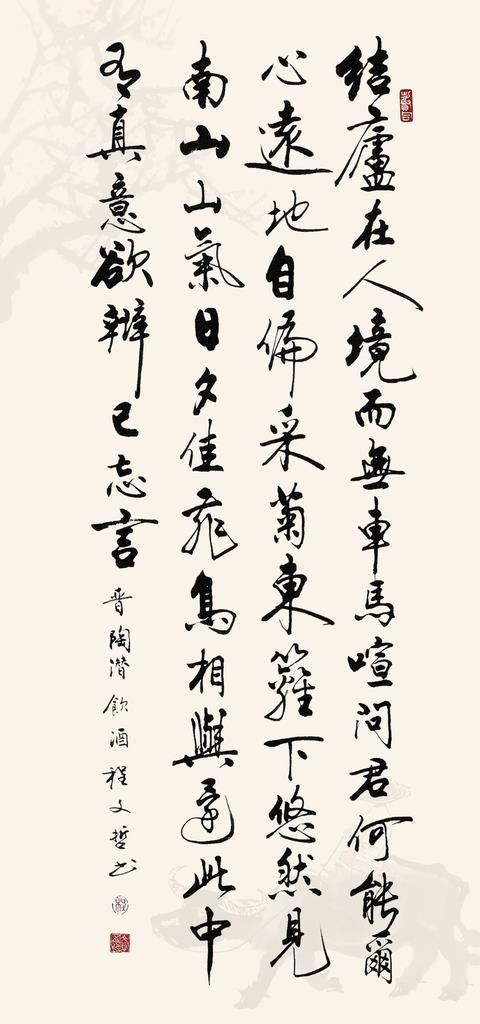 結廬在人境而無車馬喧問君何能爾
心遠地自偏采菊東籬下悠然見
南山山氣日夕佳飛鳥相與還此中
有真意欲辨已忘言
晉陶潛飲酒程文哲書